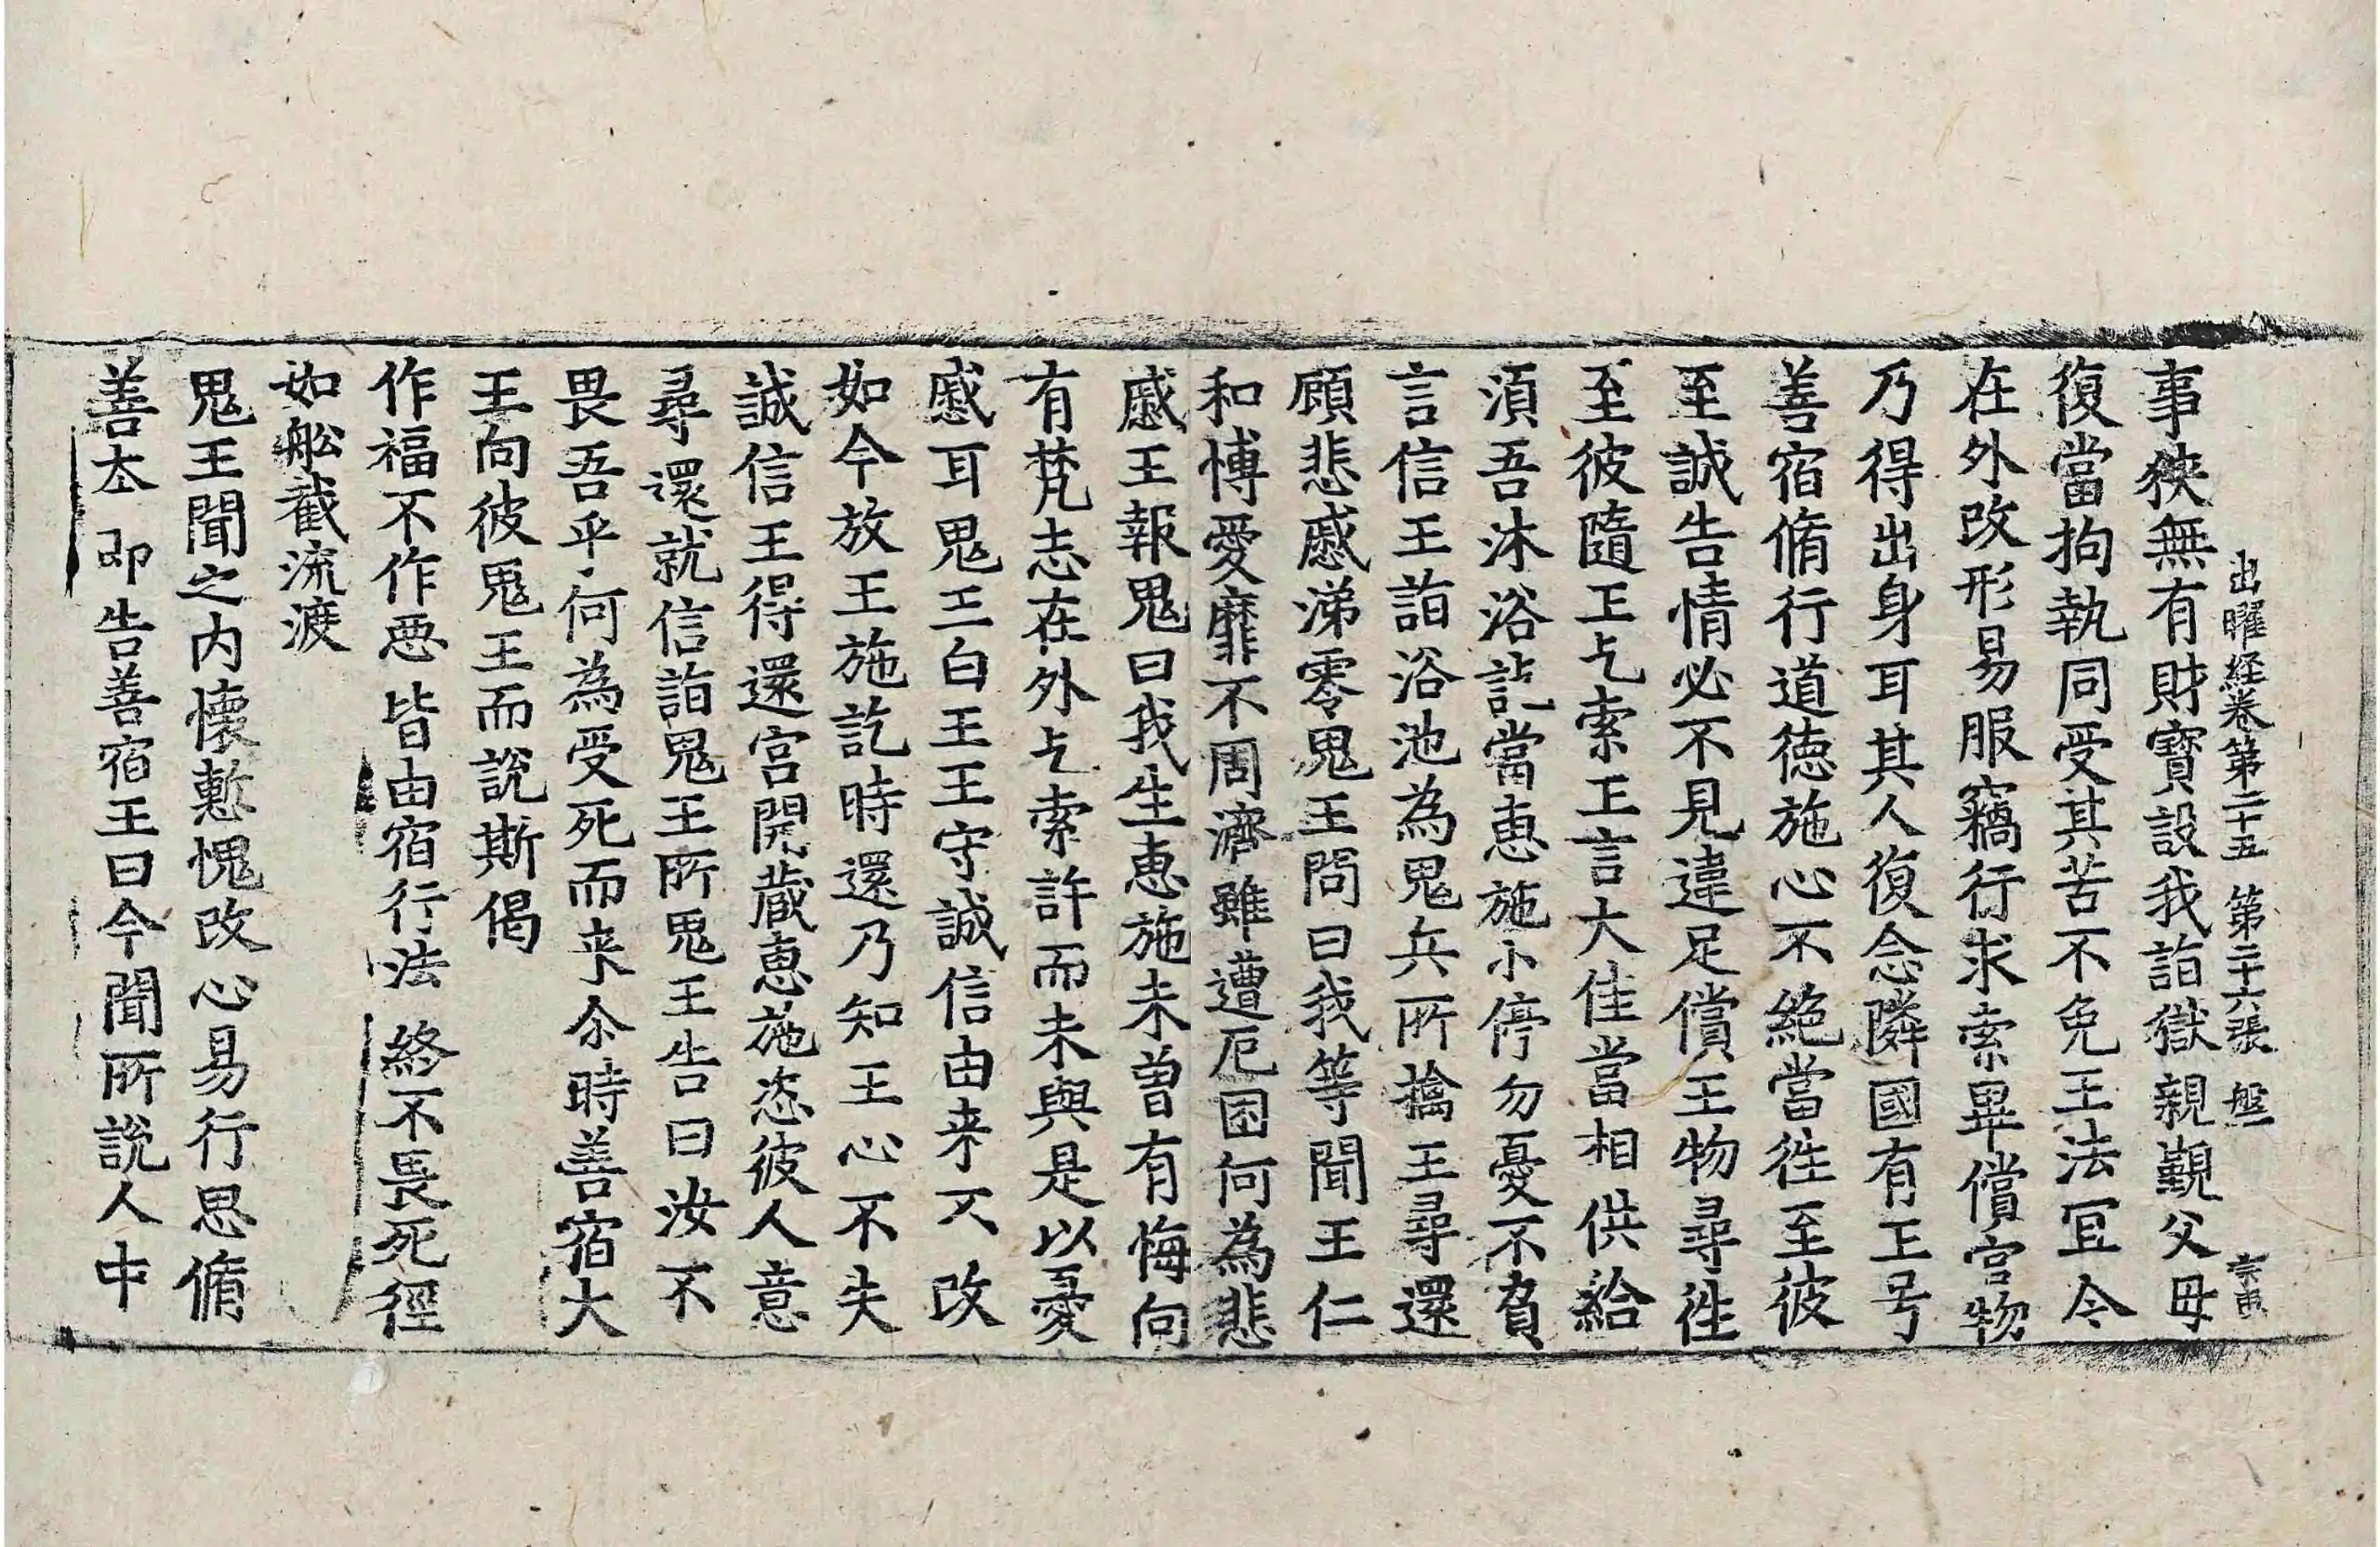 出曜経卷第二十五 第二十六張 盤
事狹無有財寶設我詣獄親覲父母
復當拘執同受其苦不免王法冝今
在外改形易服竊行求索畢償官物
乃得出身耳其人復念隣國有王号
善宿脩行道徳施心不絶當徃至彼
至誠告情必不見違足償王物尋徃
至彼隨王乞索王言大佳當相供給
湏吾沐浴訖當恵施小停勿憂不負
言信王詣浴池為鬼兵所擒王尋還
顧悲慼涕零鬼王問曰我等聞王仁
和博愛靡不周濟雖遭厄困何為悲
慼王報鬼曰我生恵施未曽有悔向
有梵志在外乞索許而未與是以憂
慼耳鬼王白王王守誠信由来不改
如今放王施訖時還乃知王心不失
誠信王得還宮開蔵恵施恣彼人意
尋還就信詣鬼王所鬼王告曰汝不
畏吾乎何為受死而来尒時善宿大
王向彼鬼王而說斯偈
作福不作恶 皆由宿行法 終不畏死徑
如舩截流渡
鬼王聞之内懐慙愧改心易行思脩
善本 即告善宿王曰今聞所說人中